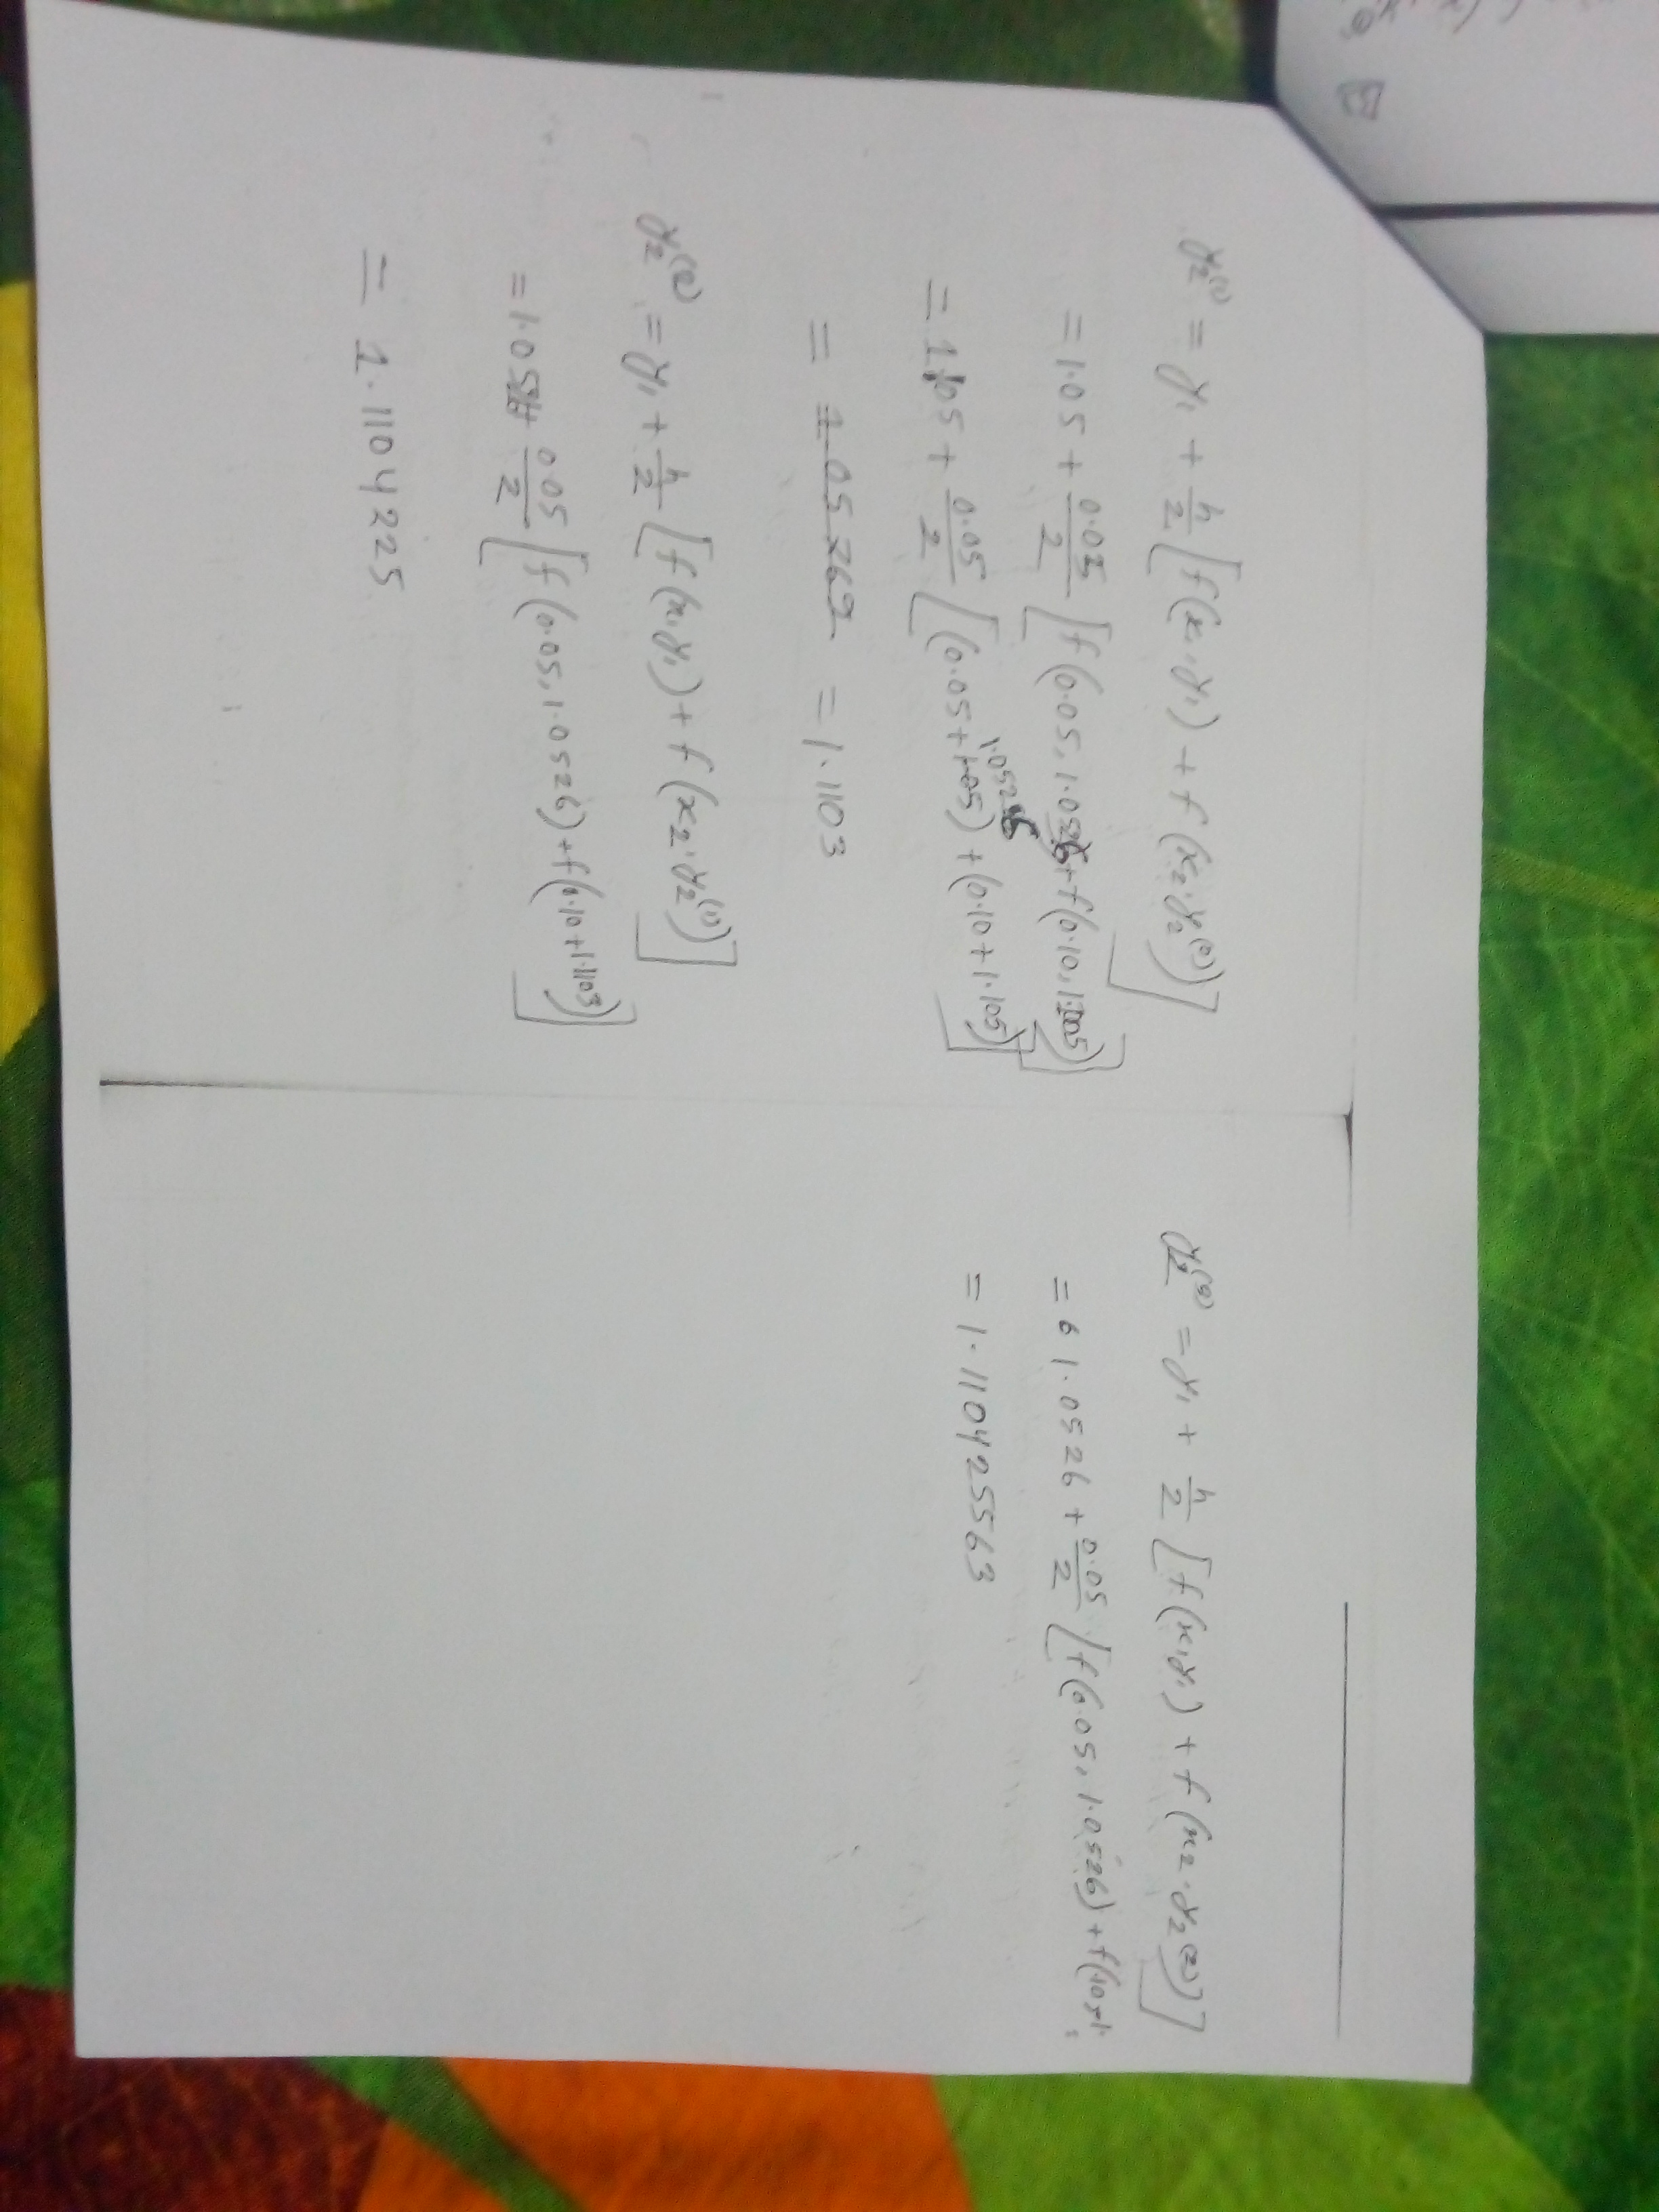 y₂⁽¹⁾ = y₁ + h/2 [f(x₁y₁) + f(x₂.y₂⁽⁰⁾)]
= 1.05 + 0.05/2 [f(0.05, 1.0526)+f(0.10, 1.105)]
= 1.05 + 0.05/2 [(0.05+1.0526) + (0.10+1.105)]
= 1.05262 = 1.1103
y₂⁽²⁾ = y₁ + h/2 [f(x₁y₁) + f(x₂.y₂⁽¹⁾)]
= 1.05 + 0.05/2 [f(0.05, 1.0526)+f(0.10+1.1103)]
= 1.1104225
y₂⁽³⁾ = y₁ + h/2 [f(x₁y₁) + f(x₂.y₂⁽²⁾)]
= 1.0526 + 0.05/2 [f(0.05, 1.0526)+f(
= 1.110425563